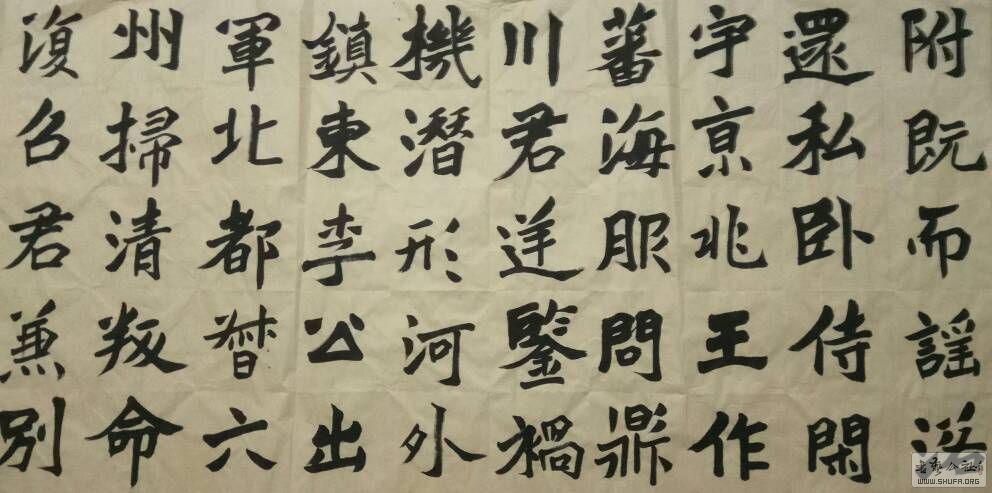 附既而謠
還私卧侍閑
宇亰兆王作
蕃海服問鼎
川君逆鑒禍
機潛形河外
鎮東李公出
軍北都督六
州掃清叛命
復召君兼別
WWW.SHUFA.ORG